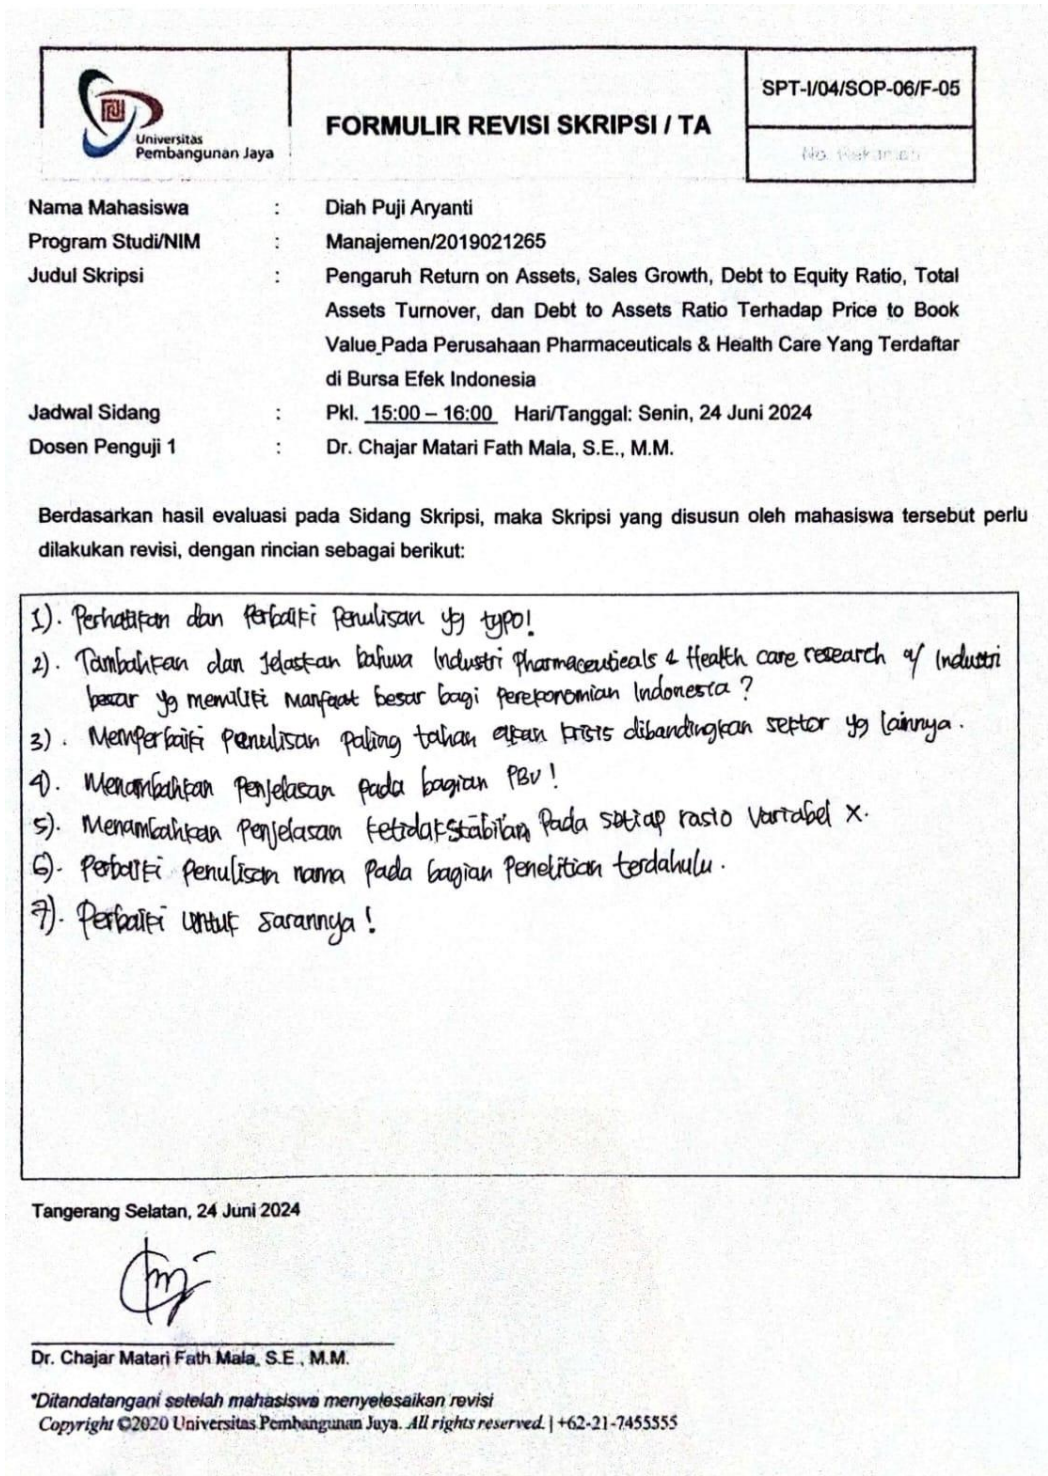 Universitas
Pembangunan Jaya
FORMULIR REVISI SKRIPSI / TA
SPT-I/04/SOP-06/F-05
No. Rekaman
Nama Mahasiswa : Diah Puji Aryanti
Program Studi/NIM : Manajemen/2019021265
Judul Skripsi : Pengaruh Return on Assets, Sales Growth, Debt to Equity Ratio, Total
Assets Turnover, dan Debt to Assets Ratio Terhadap Price to Book
Value Pada Perusahaan Pharmaceuticals & Health Care Yang Terdaftar
di Bursa Efek Indonesia
Jadwal Sidang : Pkl. 15:00 – 16:00 Hari/Tanggal: Senin, 24 Juni 2024
Dosen Penguji 1 : Dr. Chajar Matari Fath Mala, S.E., M.M.
Berdasarkan hasil evaluasi pada Sidang Skripsi, maka Skripsi yang disusun oleh mahasiswa tersebut perlu
dilakukan revisi, dengan rincian sebagai berikut:
1). Perhatikan dan Perbaiki Penulisan yg typo!
2). Tambahkan dan Jelaskan bahwa Industri Pharmaceuticals & Health care research Industri
besar yg memiliki Manfaat besar bagi Perekonomian Indonesia?
3). Memperbaiki Penulisan Paling tahan akan krisis dibandingkan sektor yg lainnya.
4). Menambahkan Penjelasan pada bagian PBV!
5). Menambahkan Penjelasan ketidakstabilan Pada setiap rasio Variabel X.
6). Perbaiki Penulisan nama Pada bagian Penelitian terdahulu.
7). Perbaiki untuk sarannya!
Tangerang Selatan, 24 Juni 2024
Dr. Chajar Matari Fath Mala, S.E., M.M.
*Ditandatangani setelah mahasiswa menyelesaikan revisi
Copyright ©2020 Universitas Pembangunan Jaya. All rights reserved. | +62-21-7455555